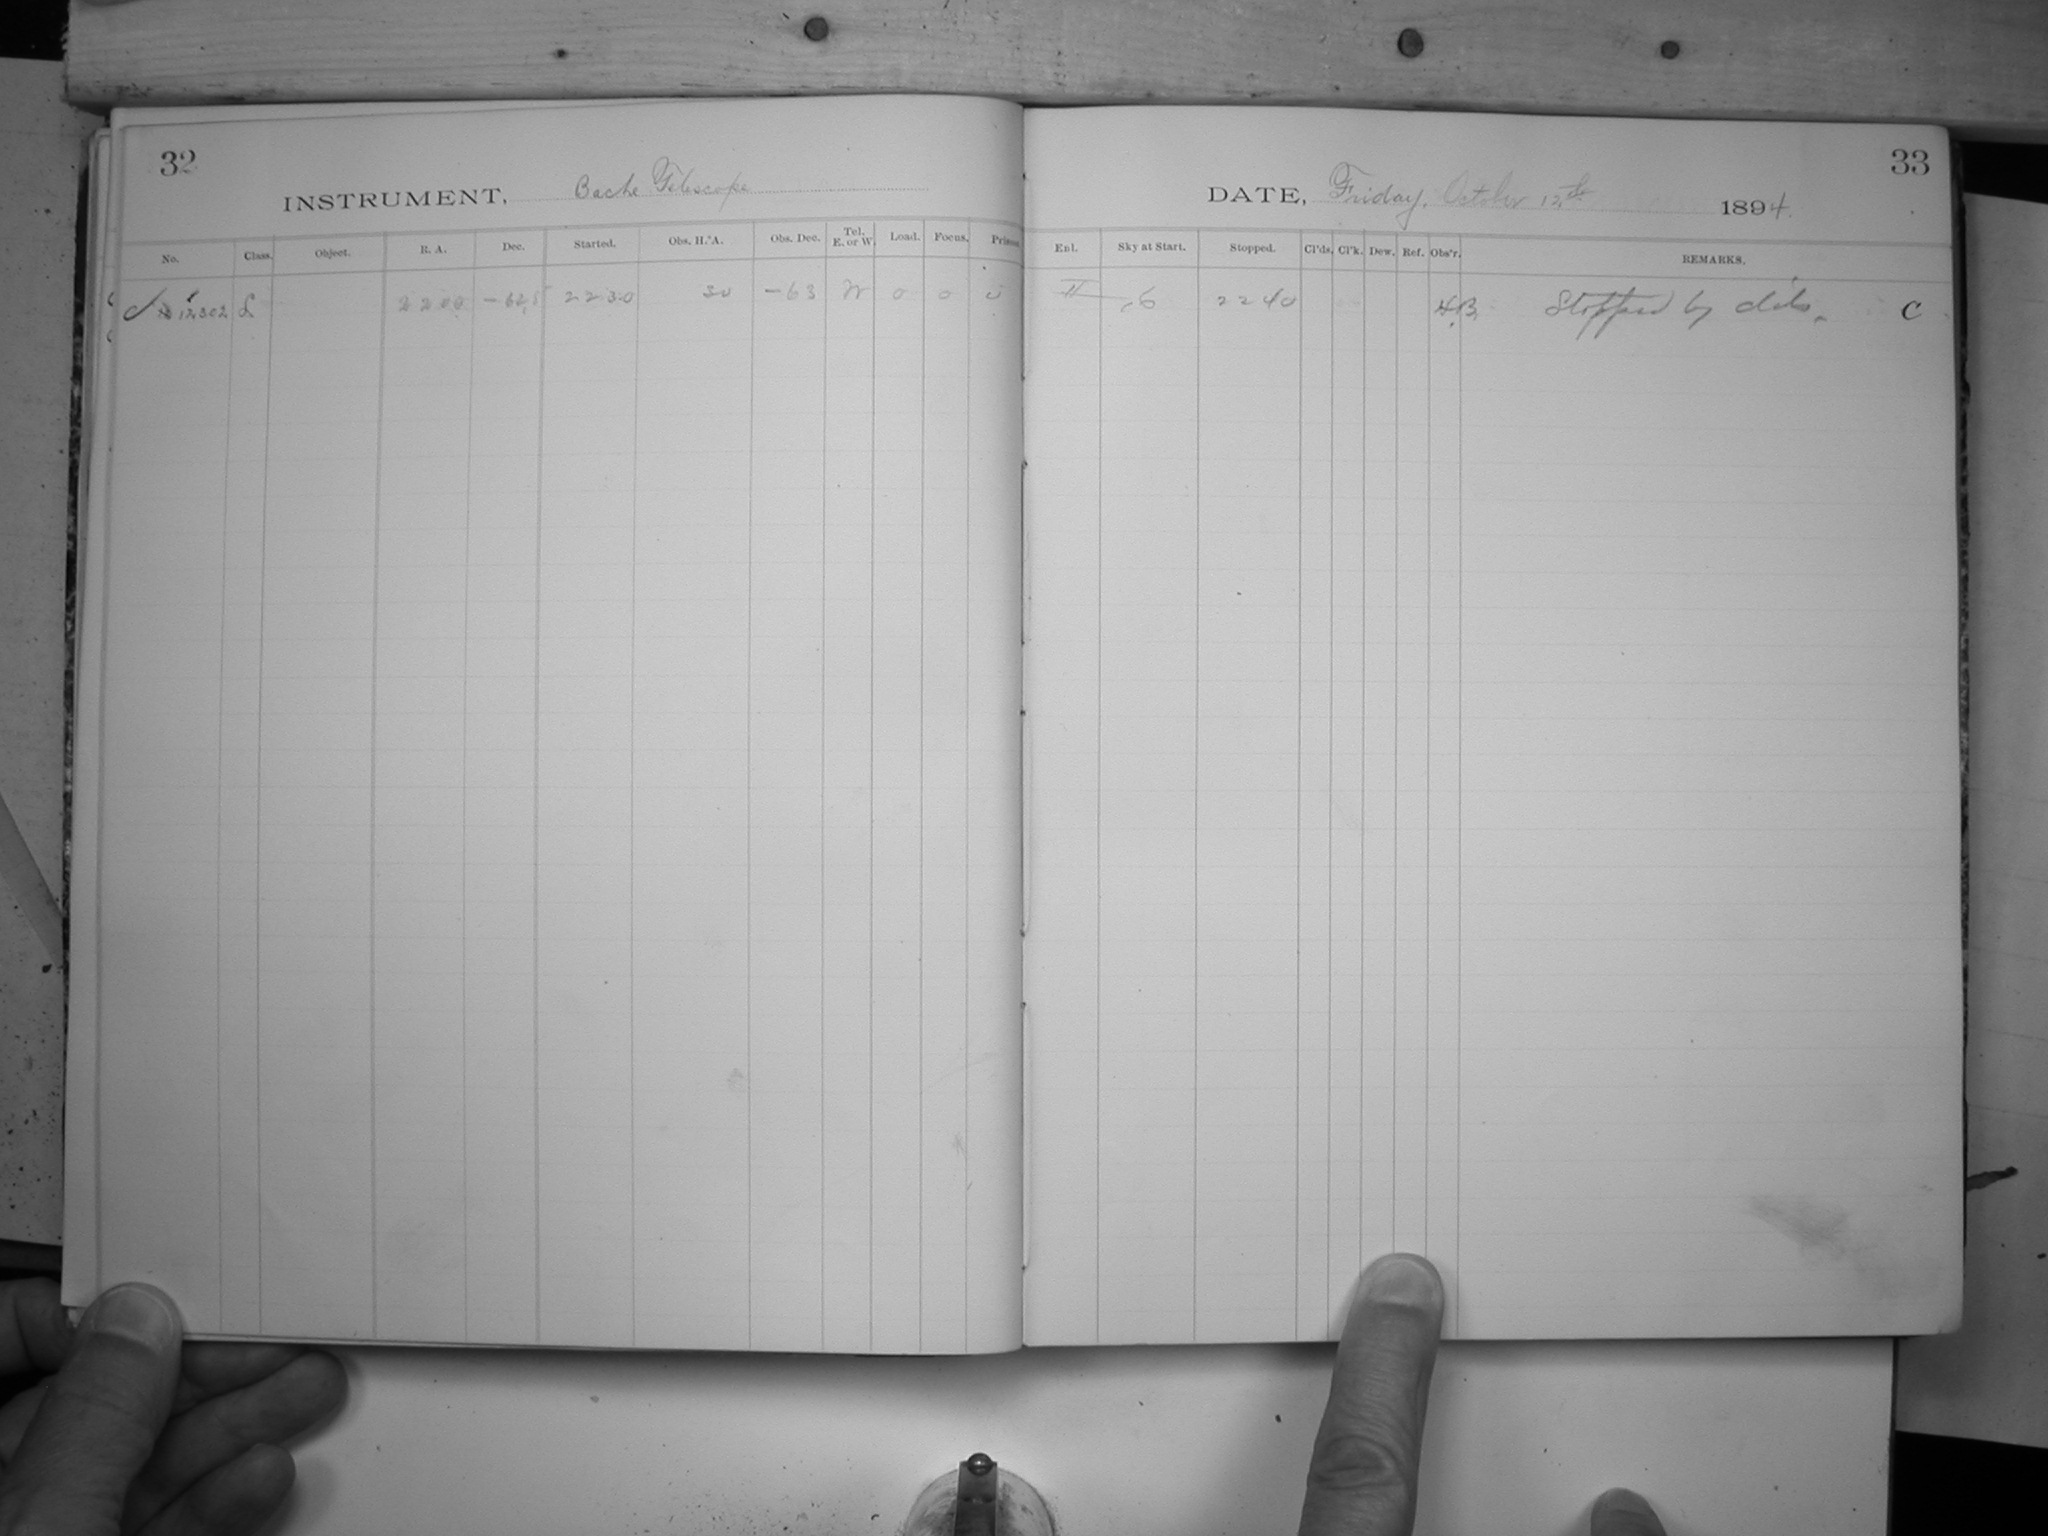 32
INSTRUMENT, Bache Telescope
No. Class. Object. R. A. Dec. Started. Obs. H. A. Obs. Dec. Tel. E. or W. Load. Focus. Prism
12302 L 22 00 -62.5 22 30 30 -63 W 0 0 0
33
DATE, Friday, October 12th 1894.
Enl. Sky at Start. Stopped. Cl'ds. Cl'k. Dew. Ref. Obs'r. REMARKS.
II 6 22 40 Stopped by clds. C